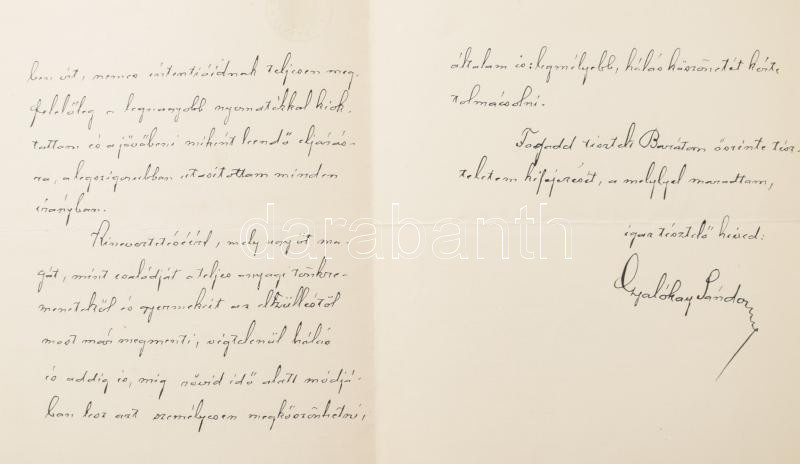 ben őt, nemes intentióidnak teljesen meg-
felelőleg a legnagyobb nyomatékkal kiok-
tattam és a jövőbeni miként leendő eljárás-
ra, a legszigorubban utasítottam minden
irányban.
Kineveztetéséért, mely ugy őt ma-
gát, mint családját a teljes anyagi tönkre-
menetelről és gyermekeit az elzülléstől
most már megmenti, végtelenül hálás
és addig is, míg rövid idő alatt módjá-
ban lesz azt személyesen megköszönhetni,
általam is: legmélyebb, hálás köszönetét kérte
tolmácsolni.
Fogadd tisztelt Barátom őszinte tisz-
teletem kifejezését, a melylyel maradtam,
igaz tisztelő hived:
Gyalókay Sándor
darabanth